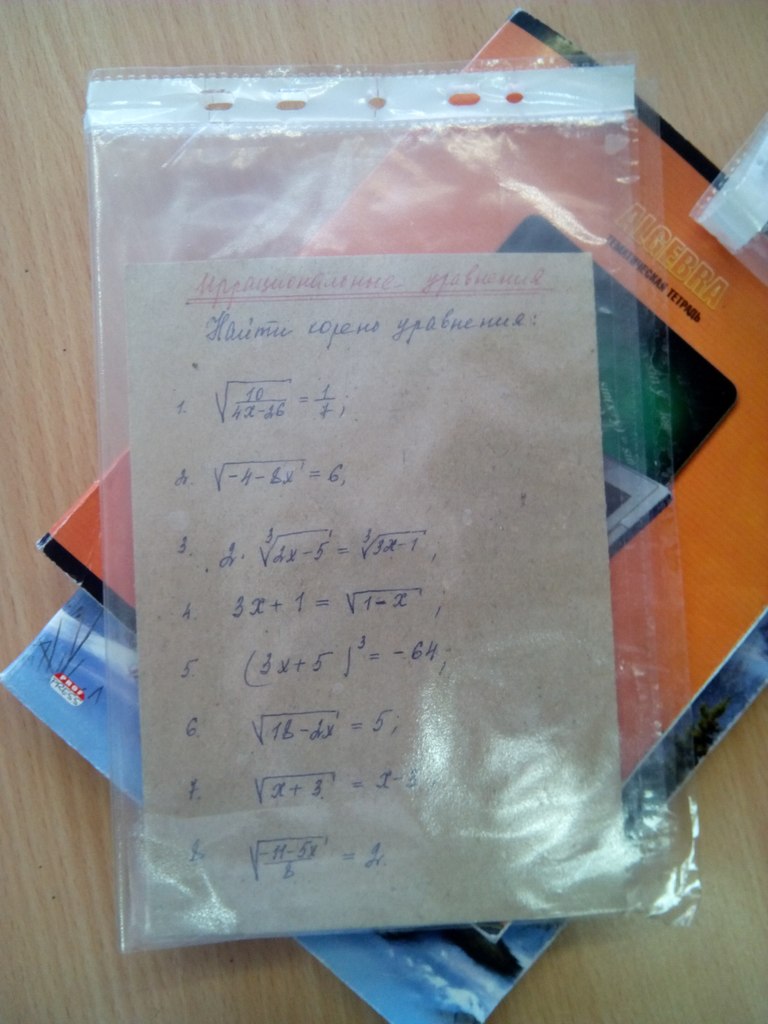 ALGEBRA
ТЕМАТИЧЕСКАЯ ТЕТРАДЬ
Иррациональные уравнения
Найти корень уравнения:
1. √(10/(4x-26)) = 1/7;
2. √(-4-8x) = 6;
3. 2·∛(2x-5) = ∛(3x-1);
4. 3x+1 = √(1-x);
5. (3x+5)³ = -64;
6. √(18-2x) = 5;
7. √(x+3) = x-3
8 √((-11-5x)/8) = 2
PRESS